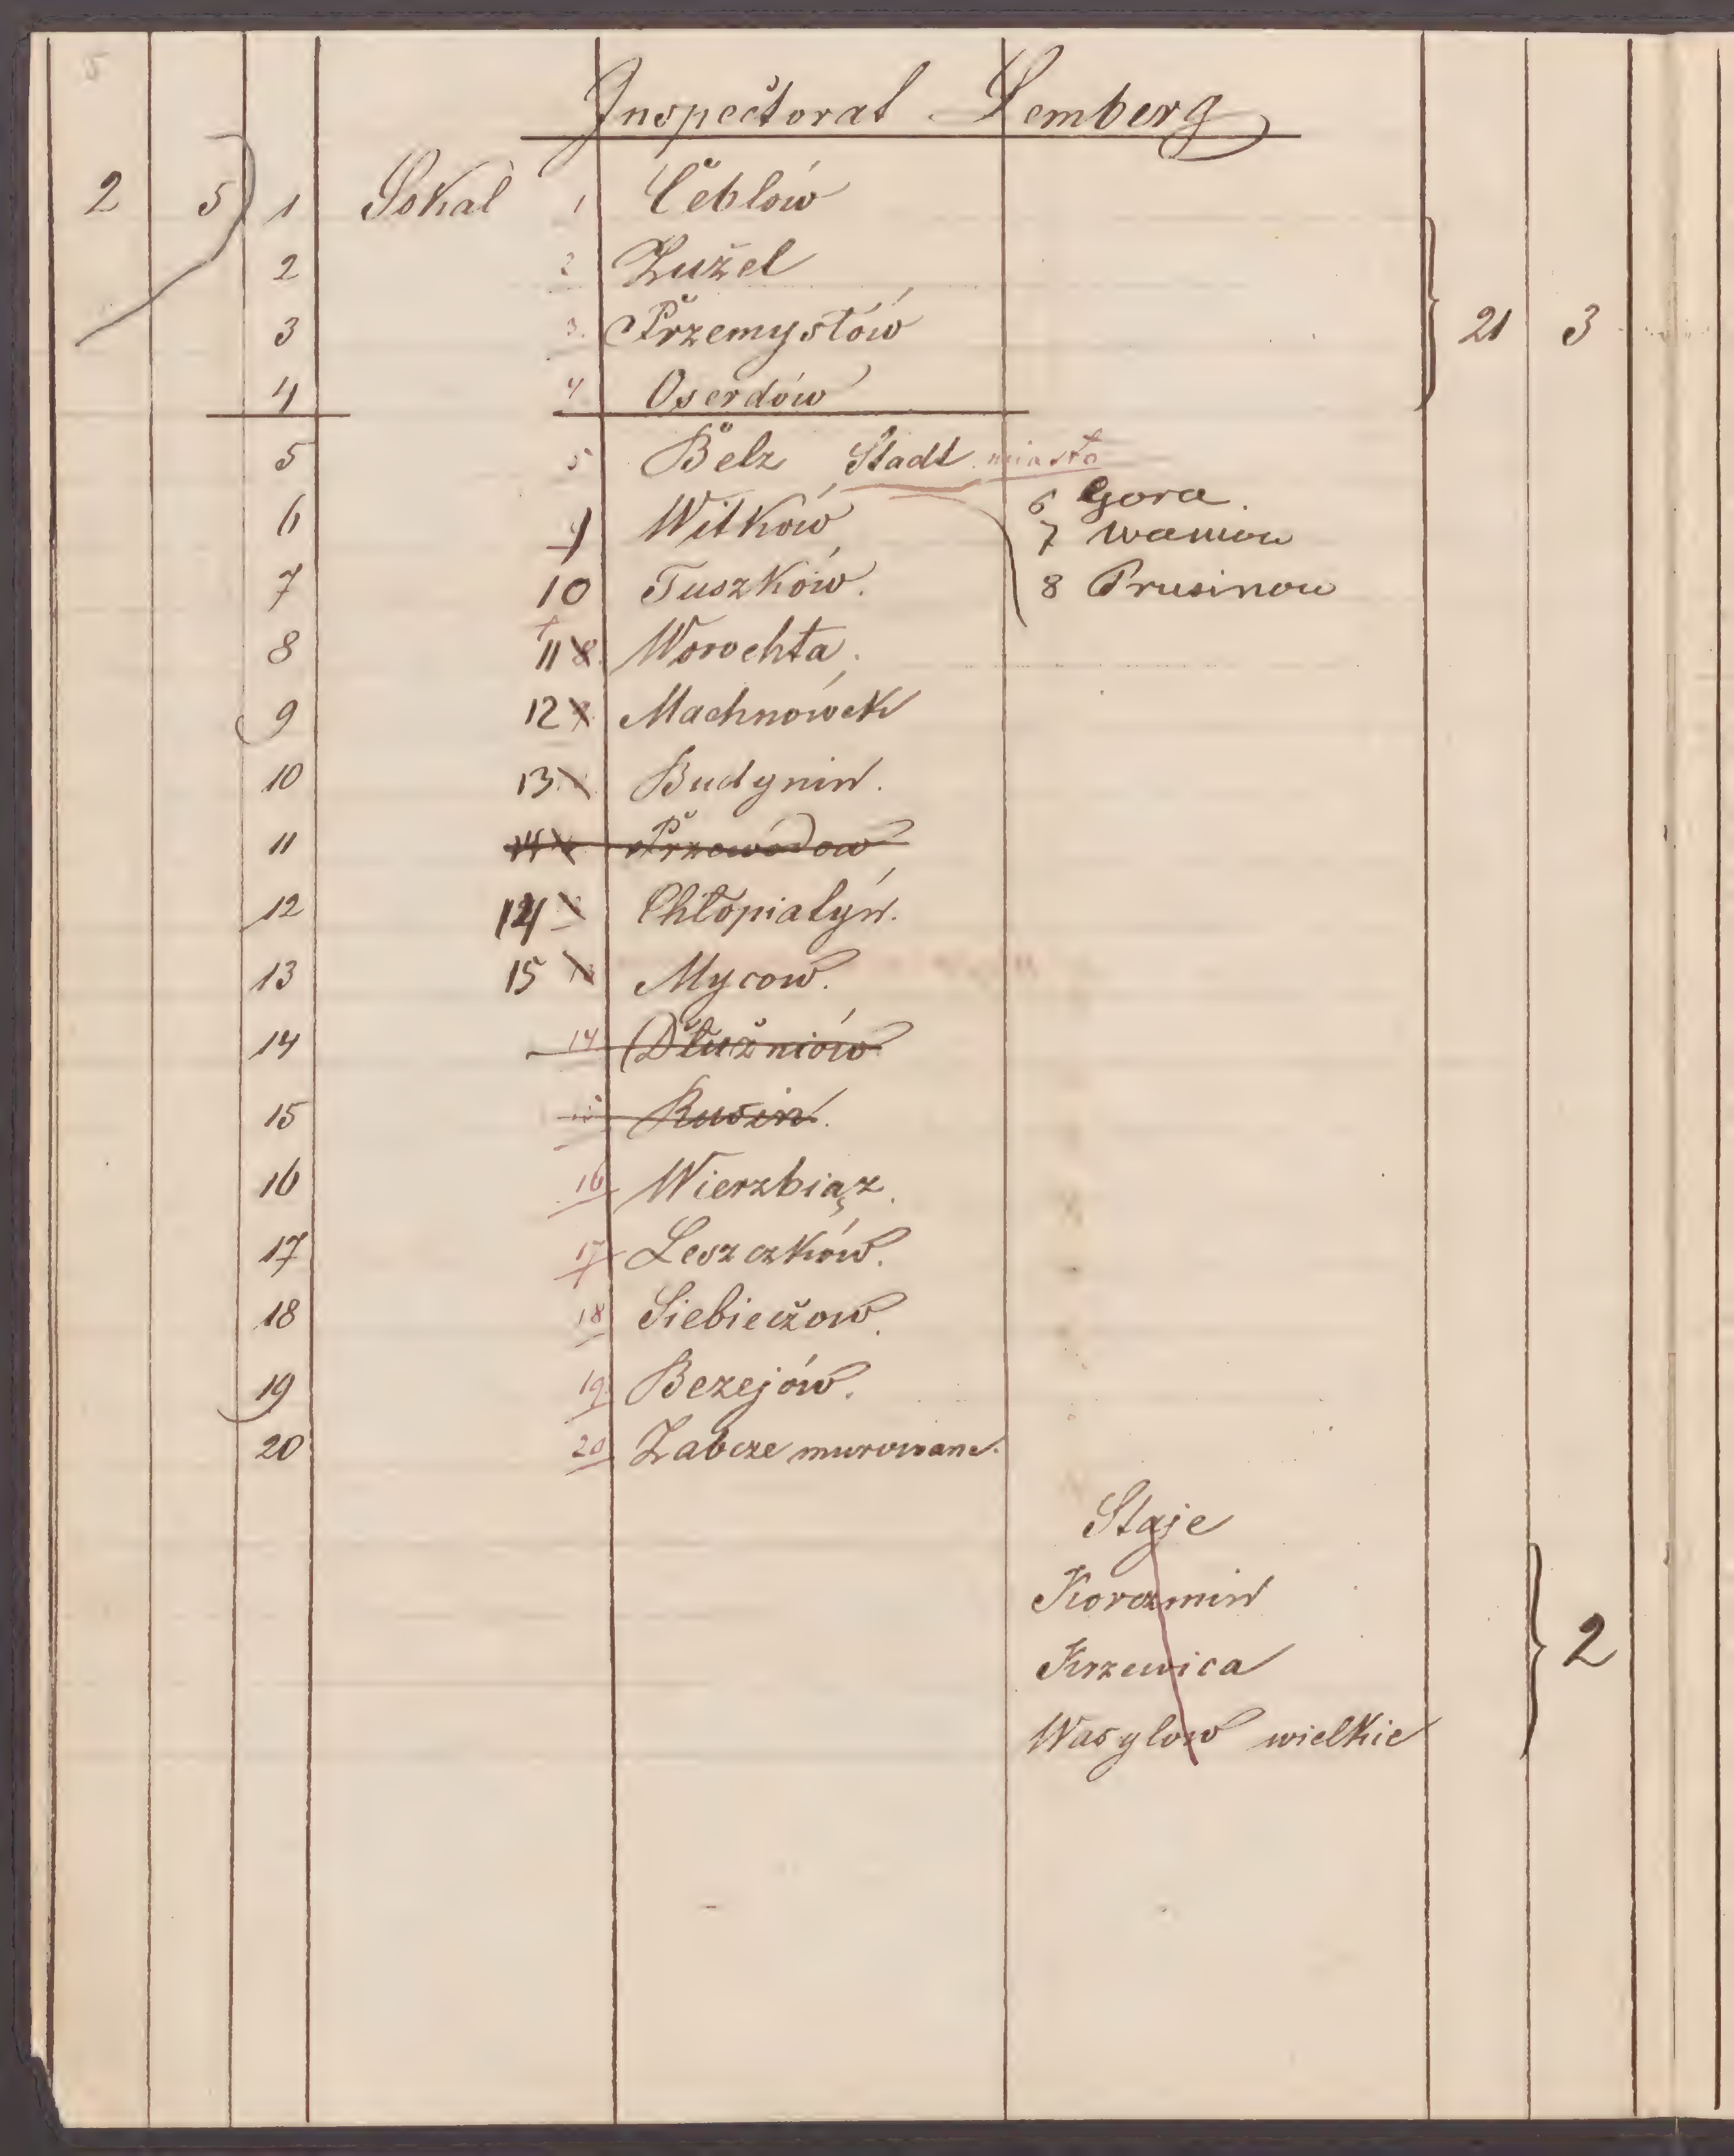 5
Inspectorat Lemberg
2 5 1 Sokal 1 Ceblów
2 2 Zužel
3 3. Przemysłów 21 3
4 4 Oserdów
5 5 Belz Stadt miasto
6 Gora.
6 9 Witków
7 Waniow
7 10 Tuszków. 8 Prusinow
8 11 8. Worochta.
9 12 9 Machnówek
10 13 Budynin.
11 14 Przewodow
12 14 Chłopiatyń.
13 15 Mycow.
14 14 Dłužniów
15 Rusin.
16 16 Wierzbiąz.
17 17 Leszczków.
18 18 Siebieczow.
19 19. Bezejów.
20 20 Zabcze murowane.
Staje
Korczmin
Krzewica 2
Wasylow wielkie